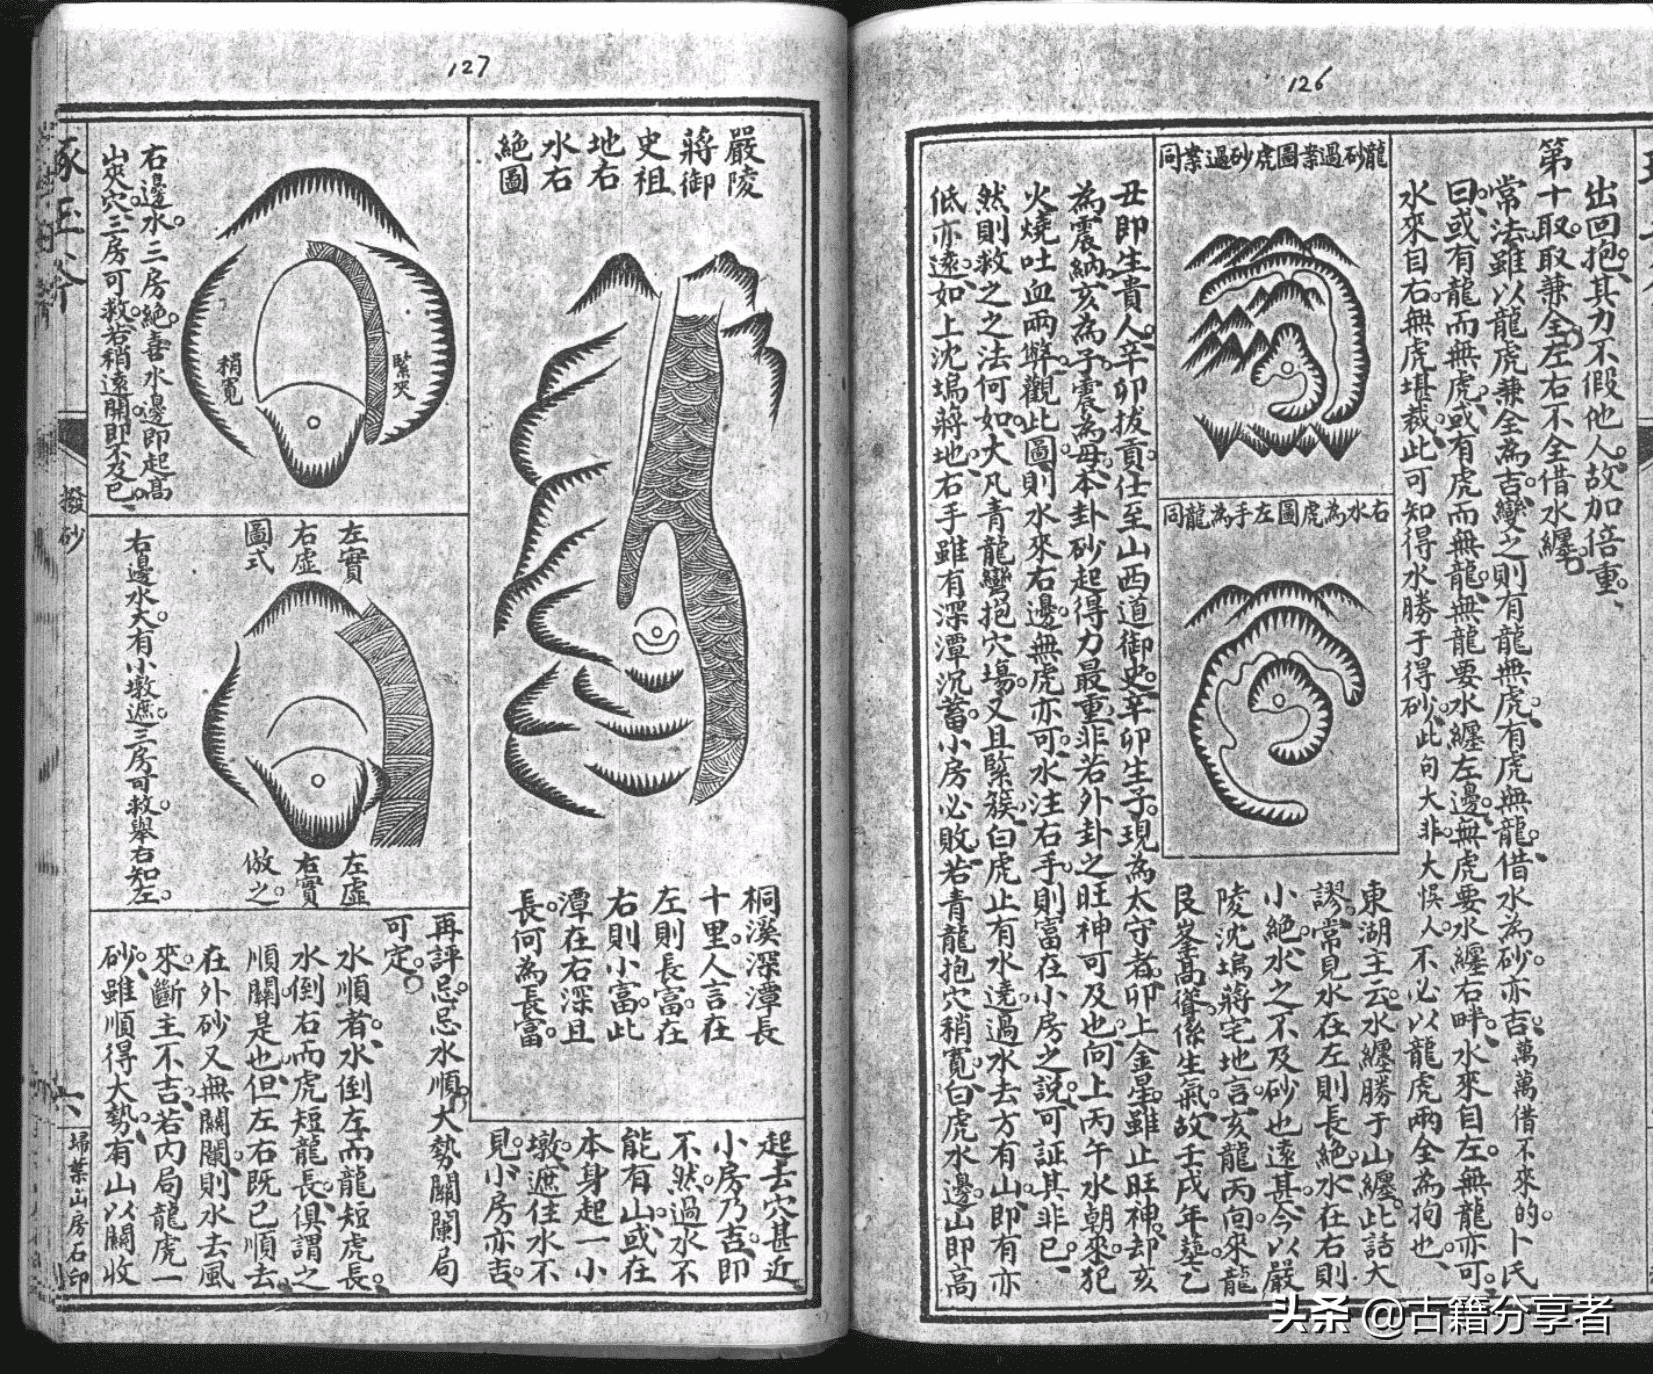 126
出回抱其力不假他人故加倍重
第十取取兼全左右不全借水纏
常法雖以龍虎兼全為吉變之則有龍無虎有虎無龍借水為砂亦吉萬萬借不來的卜氏
曰或有龍而無虎或有虎而無龍無龍要水纏左邊無虎要水纏右畔水來自左無龍亦可
水來自右無虎堪裁此可知得水勝于得砂此句大非大悞人不必以龍虎兩全為拘也
龍砂過案圖虎砂過案同
右水為虎圖左手為龍同
東湖主云水纏勝于山纏此話大
謬常見水在左則長絕水在右則
小絕水之不及砂也遠甚今以嚴
陵沈塢蔣宅地言亥龍丙向來龍
艮峯高聳係生氣故壬戌年葬乙
丑即生貴人辛卯拔貢仕至山西道御史辛卯生子現為太守者卯上金星雖止旺神却亥
為震納亥為子震為母本卦砂起得力最重非若外卦之旺神可及也向上丙午水朝來犯
火燒吐血兩弊觀此圖則水來右邊無虎亦可水注右手則富在小房之說可証其非已
然則救之之法何如大凡青龍彎抱穴塲又且緊簇白虎止有水遶過水去方有山即有亦
低亦遠如上沈塢蔣地右手雖有深潭沉蓄小房必敗若青龍抱穴稍寬白虎水邊山即高
127
嚴陵
蔣御
史祖
地右
水右
絕圖
桐溪深潭長
十里人言在
左則長富在
右則小富此
潭在右深且
長何為長富
起去穴甚近
小房乃吉即
不然過水不
能有山或在
本身起一小
墩遮住水不
見小房亦吉
緊夾
稍寬
右邊水三房絕喜水邊即起高
山夾穴三房可救若稍遠開即不及已
左實
右虛
圖式
左虛
右實
倣之
右邊水大有小墩遮三房可救舉右知左
再評忌忌水順大勢關闌局
可定
水順者水倒左而龍短虎長
水倒右而虎短龍長俱謂之
順關是也但左右既已順去
在外砂又無關闌則水去風
來斷主不吉若內局龍虎一
砂雖順得大勢有山以關收
撥砂
六
埽葉山房石印
头条 @古籍分享者